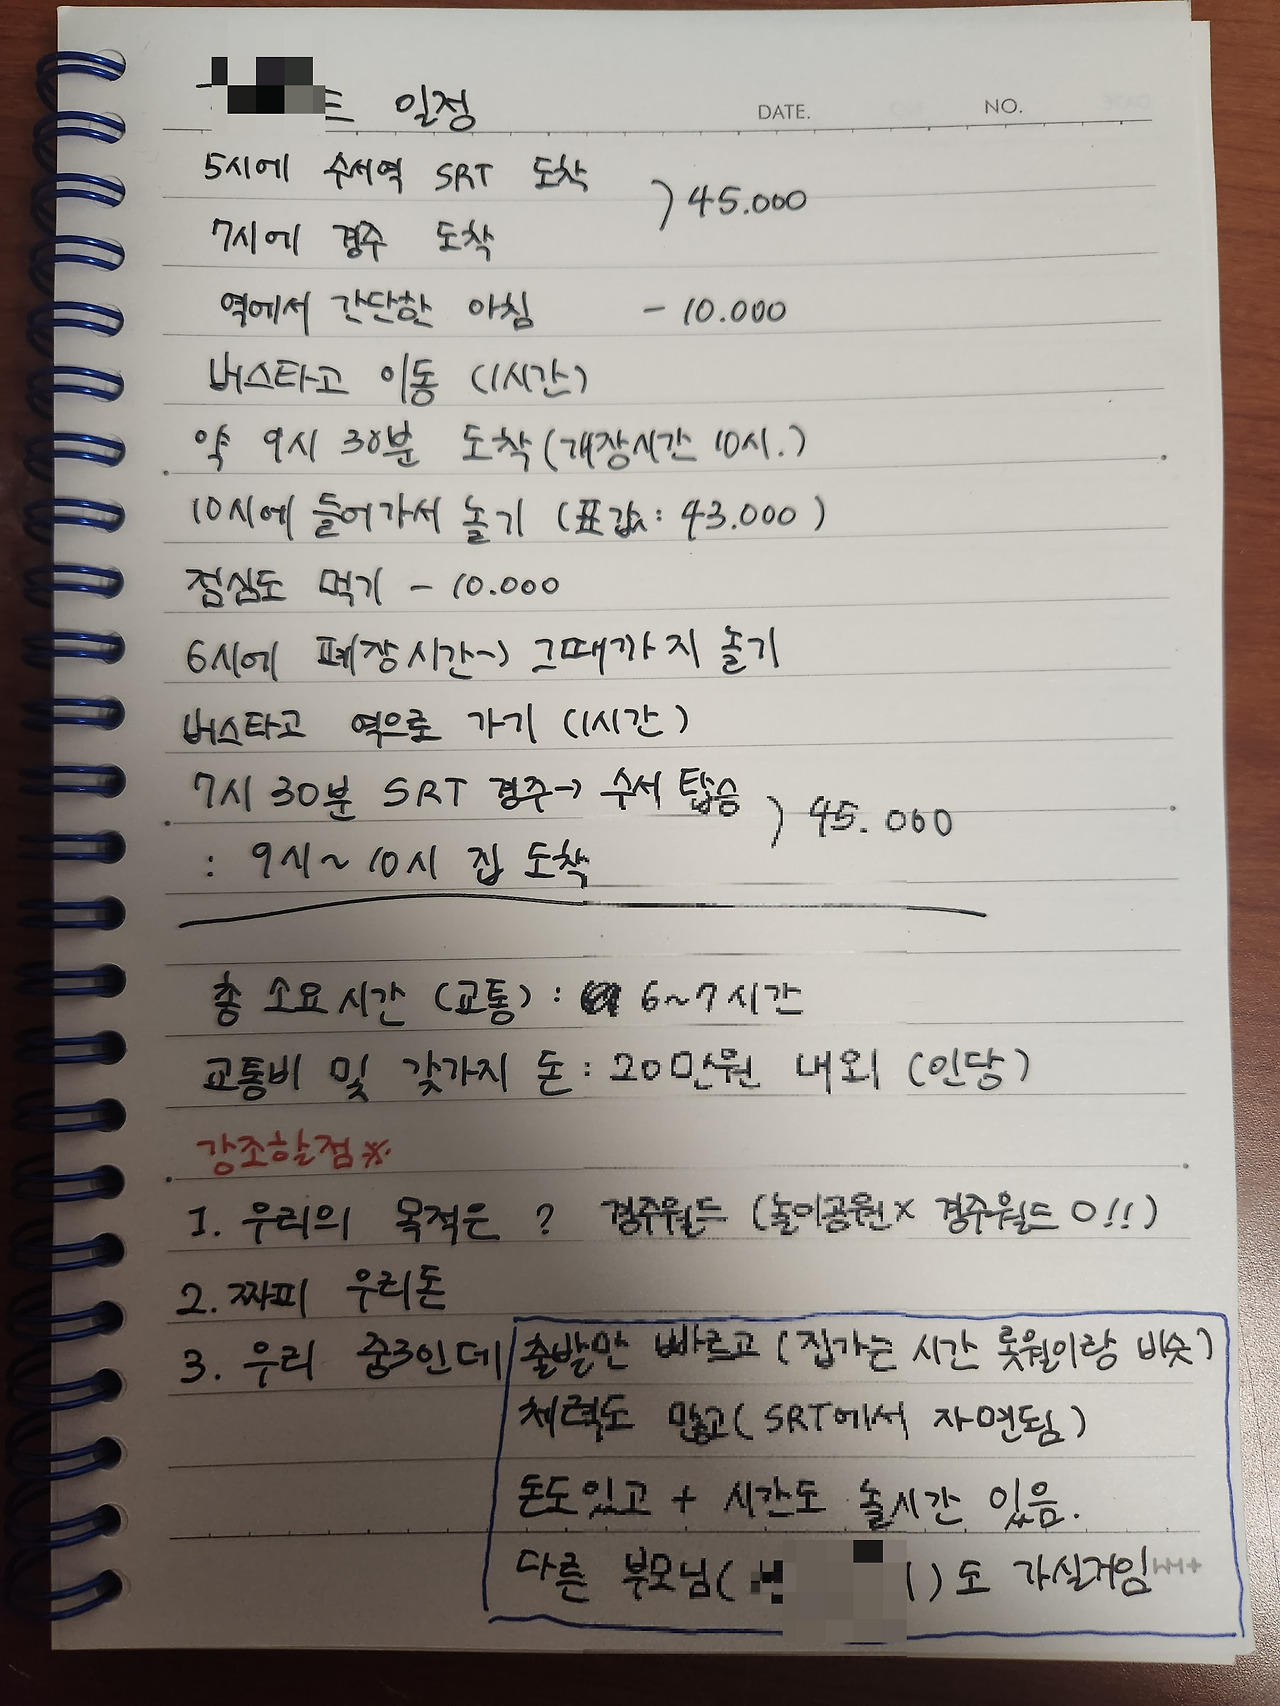 드 일정
DATE. NO.
5시에 수서역 SRT 도착
) 45.000
7시에 경주 도착
역에서 간단한 아침 - 10.000
버스타고 이동 (1시간)
약 9시 30분 도착 (개장시간 10시.)
10시에 들어가서 놀기 (표값: 43.000)
점심도 먹기 - 10.000
6시에 폐장시간~) 그때까지 놀기
버스타고 역으로 가기 (1시간)
7시 30분 SRT 경주→ 수서 탑승
) 45.000
: 9시~10시 집 도착
총 소요시간 (교통) : 6~7시간
교통비 및 갖가지 돈 : 20만원 내외 (인당)
강조할점※
1. 우리의 목적은 ? 경주월드 (놀이공원X 경주월드 O!!)
2. 짜피 우리돈
3. 우리 중3인데 출발만 빠르고 (집가는 시간 롯월이랑 비슷)
체력도 많고 (SRT에서 자면됨)
돈도있고 + 시간도 놀시간 있음.
다른 부모님( )도 가실거임